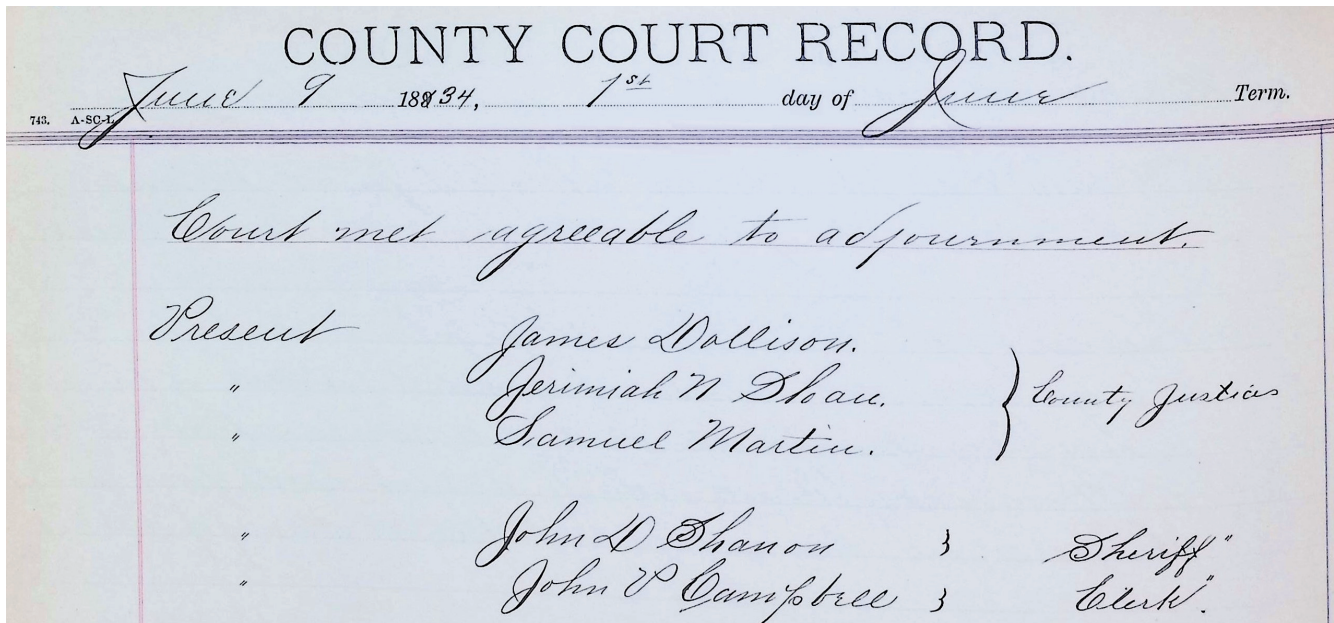 COUNTY COURT RECORD.
June 9 1834, 1st day of June Term.
743. A-SC-L
Court met agreeable to adjournment.
Present James Dollison.
" Jerimiah N Sloan. } County Justices
" Samuel Martin.
" John D Shanon } Sheriff"
" John P Campbell } Clerk".